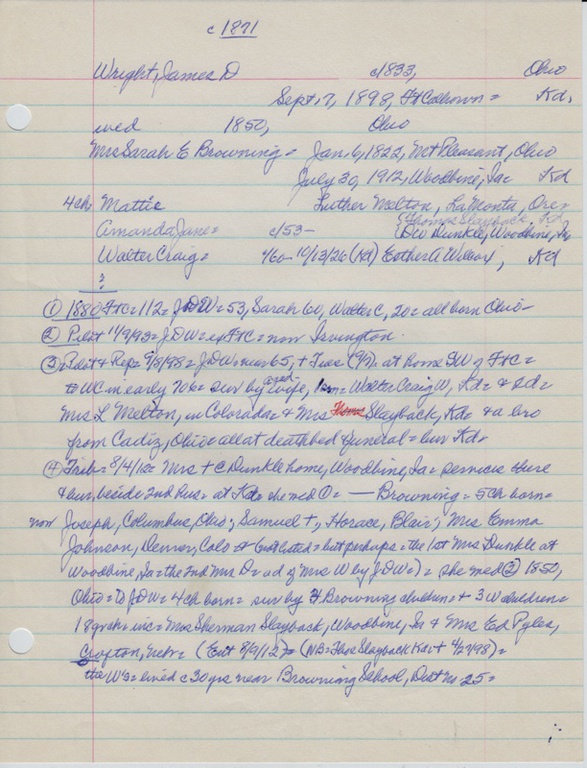 c 1871
Wright, James D c1833, Ohio
Sept. 7, 1898, Ft Calhoun = Kd,
wed 1850, Ohio
Mrs Sarah E Browning = Jan. 6, 1822, Mt Pleasant, Ohio
July 30, 1912, Woodbine, Ia Kd
4ch Mattie Luther Melton, LaMonta, Ore,
{Thomas Slayback, Kd
Amanda Jane = c/53 - {DW Dunkle, Woodbine, Ia,
Walter Craig = c/60 - 10/13/26 (Kd) Esther A Wilcox, Kd
?
① 1880 Ft C = 112 = JDW = 53, Sarah 60, Walter C, 20 = all born Ohio -
② Pilot 11/9/93 = JDW = ex Ft C = now Irvington
③ Pilot & Rep = 9/8/98 = JDW = 65, + Tues (9/7) at home SW of Ft C =
to WC in early 70s = sur by aged wife, 1 son = Walter Craig W, Kd = & 2d =
Mrs L Melton, in Colorado = & Mrs Slayback, Kd = & a bro
from Cadiz, Ohio = all at deathbed & funeral = bur Kd =
④ Trib = 8/4/12 = Mrs + C Dunkle home, Woodbine, Ia = services there
& bur, beside 2nd hus = at Kd = she med ① = — Browning = 5ch born =
now Joseph, Columbus, Ohio; Samuel +, Horace, Blair; Mrs Emma
Johnson, Denver, Colo & (not listed = but perhaps = the 1st Mrs Dunkle at
Woodbine, Ia = the 2nd Mrs D = a d of Mrs W by JDW =) = she med ② 1850,
Ohio = to JDW = 4ch born = sur by 4 Browning children + 3 W children =
18 grch = inc = Mrs Sherman Slayback, Woodbine, Ia & Mrs Ed Pyles,
Crofton, Nebr = (Ent 8/9/12) = (NB = Thos Slayback Kd + 4/27/98) =
the W's = lived c 30 yrs near Browning School, Dist No 25 =